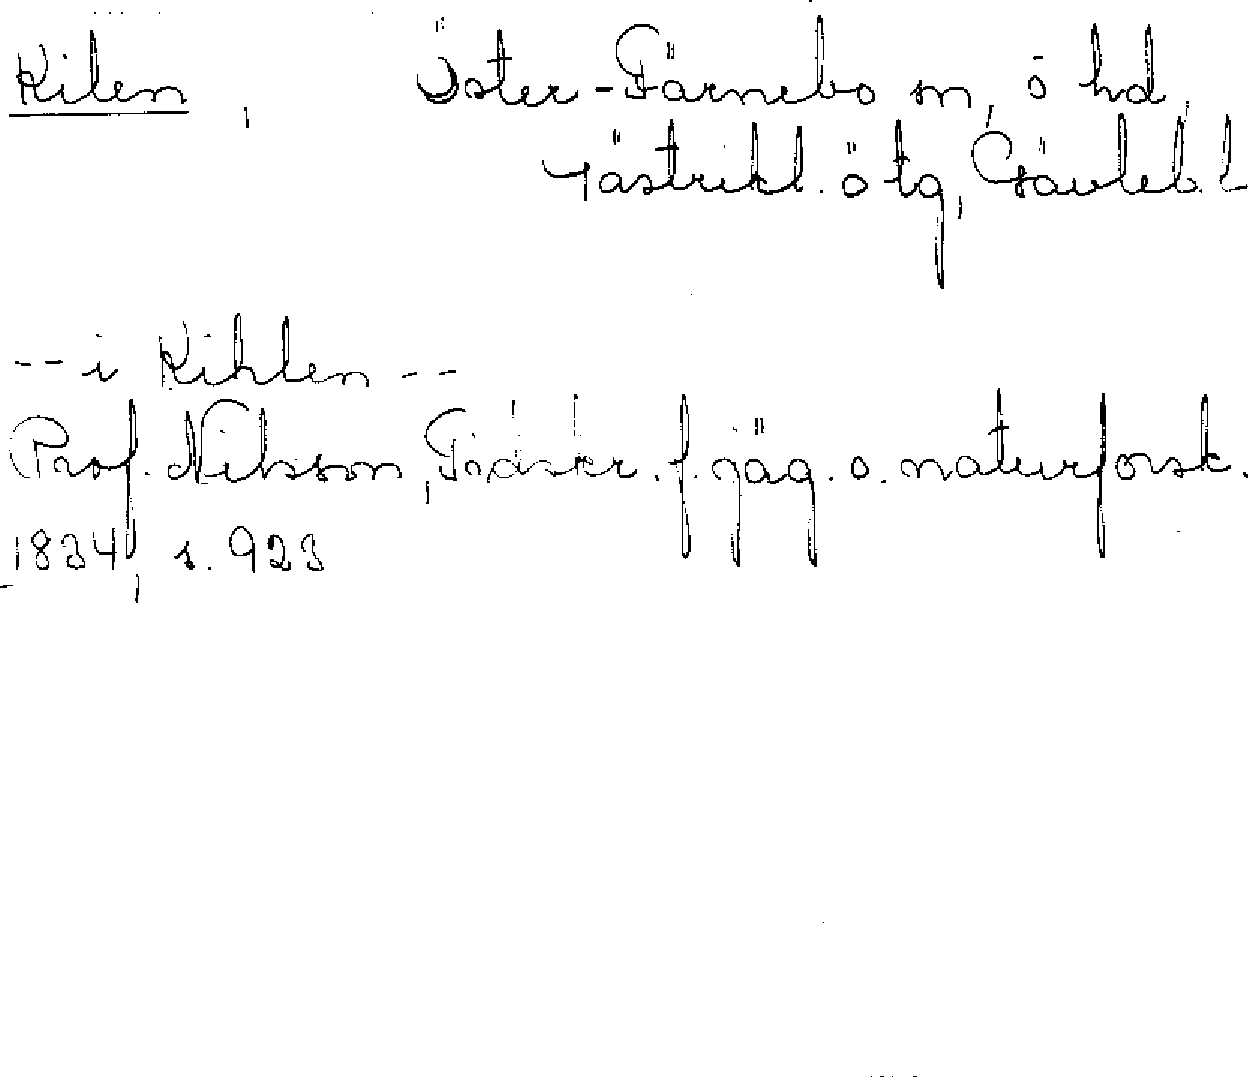 Kilen, Öster-Färnebo sn, ö hd,
Gästrikl. ö tg, Gävleb. L
-- i Kihlen --
Prof. Nilsson, Tidskr. f. jäg. o. naturforsk.
1834, s. 923